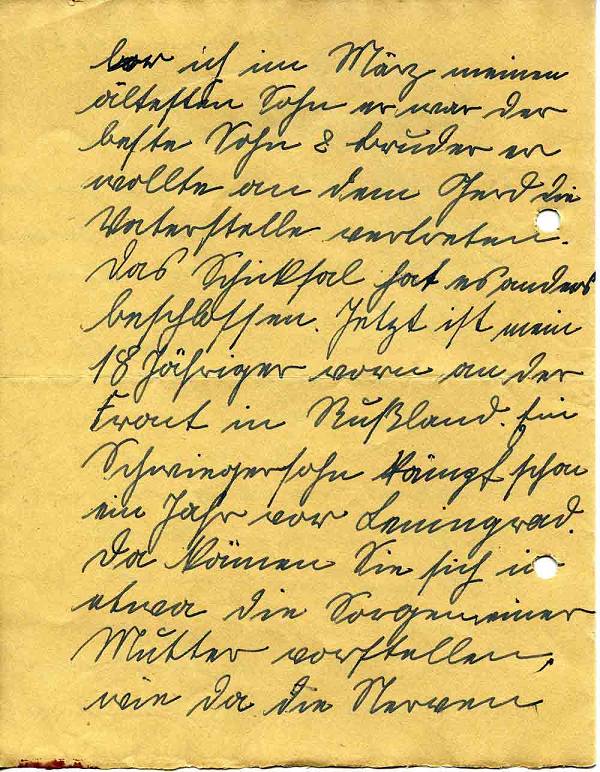 lor ich im März meinen
ältesten Sohn er war der
beste Sohn & Bruder er
wollte an dem Gerd die
Vaterstelle vertreten.
Das Schiksal hat es anders
beschlossen. Jetzt ist mein
18 Jähriger vorn an der
Front in Rußland. Ein
Schwiegersohn kämpf schon
ein Jahr vor Leningrad.
Da können Sie sich in
etwa die Sorgen einer
Mutter vorstellen,
wie da die Nerven